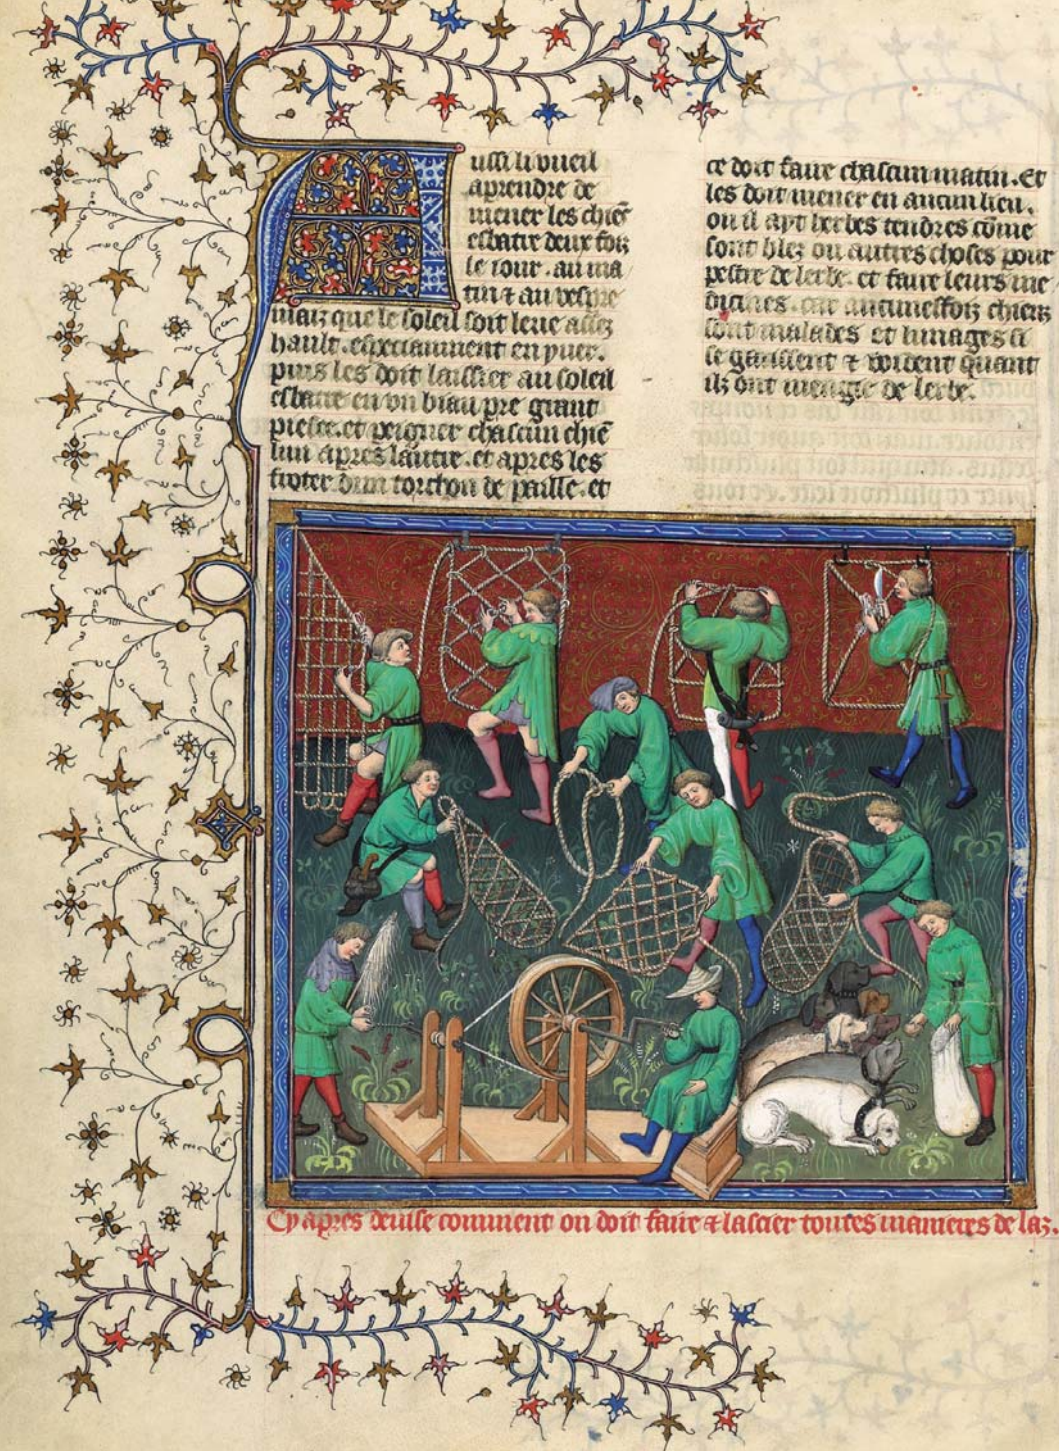 Aussi li vueil
aprendre de
mener les chiēs
esbatre deux foiz
le iour. au ma
tin & au vespre
maiz que le soleil soit leue assez
hault. especiaument en yuer.
puis les doit laissier au soleil
esbatre en vn biau pre grant
piesce. et peigner chascun chiē
lun apres lautre. et apres les
froter dun torchon de paille. et
ce doit faire chascun matin. Et
les doit mener en aucun lieu.
ou il ayt herbes tendres cōme
sont blez ou autres choses pour
pestre de lerbe. et faire leurs me
dicines. car aucuneffoiz chienz
sont malades et
se garissent & voident quant
ilz ont mengie de lerbe.
Cy apres deuise comment on doit faire & lascier toutes manieres de laz.